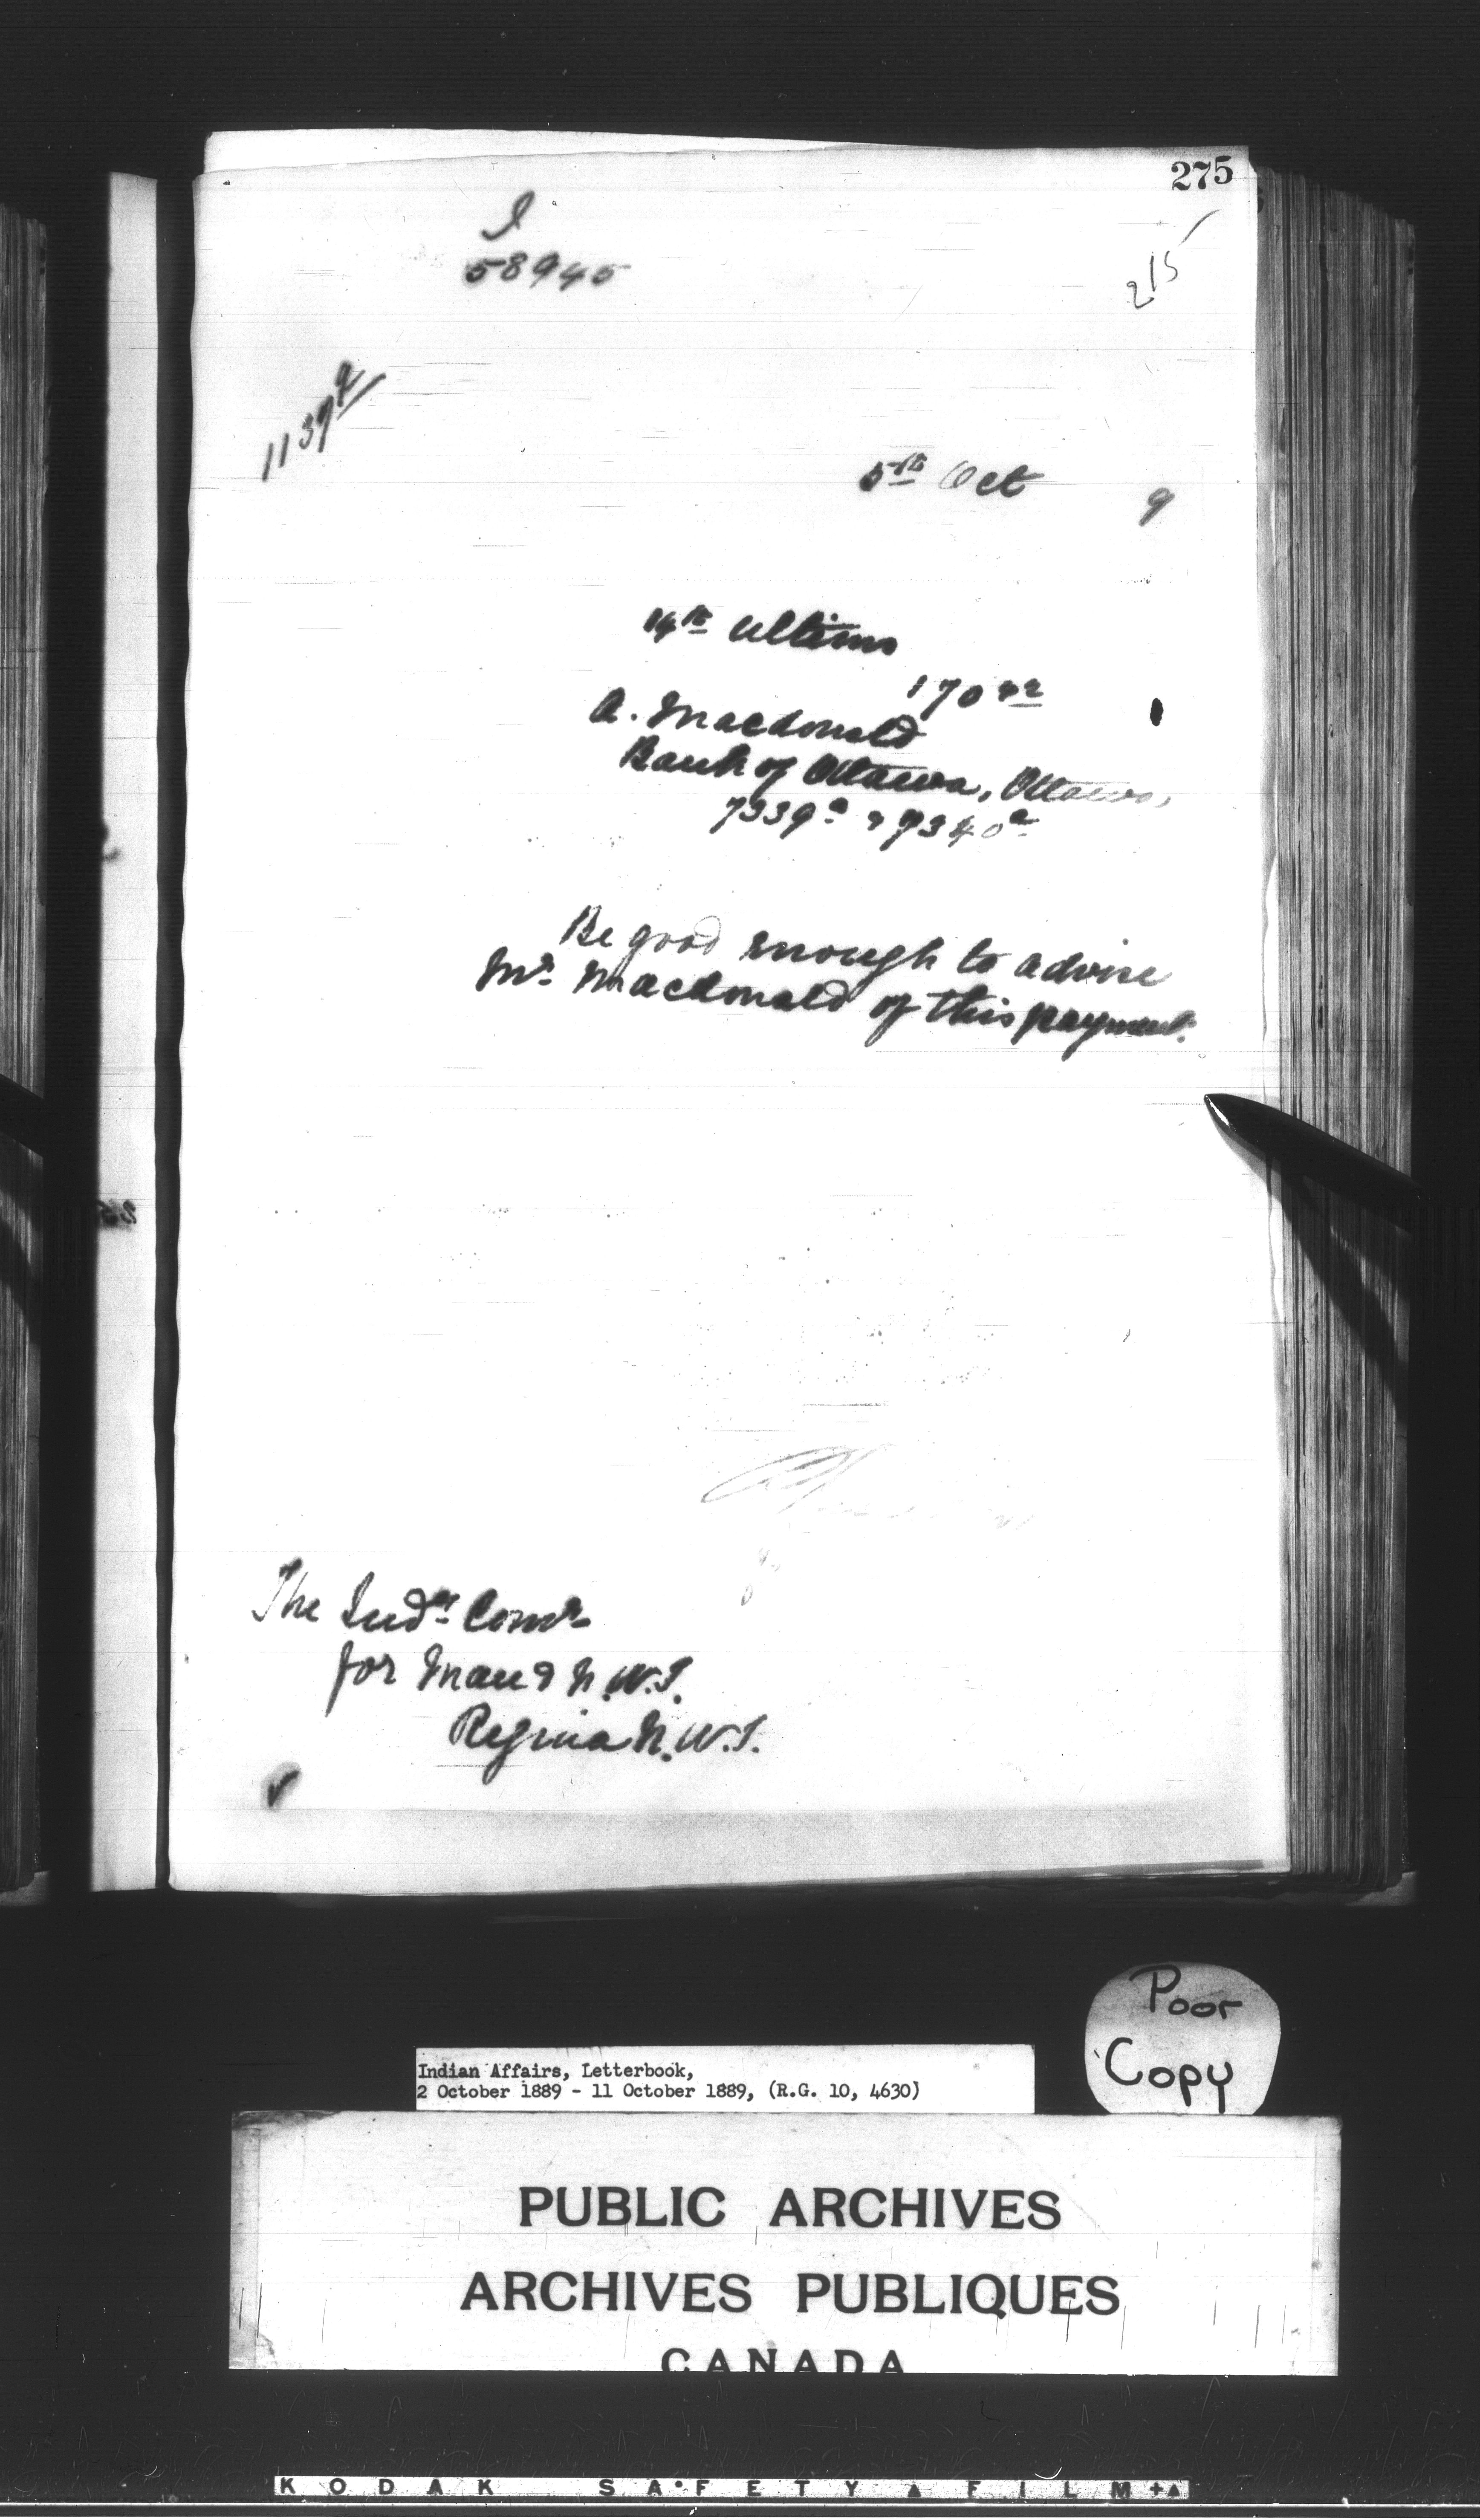 275
I
58945
215
1139
5th Oct 9
14th Ultimo
170
A. Macdonald
Bank of Ottawa, Ottawa,
7339a & 7340a
Be good enough to advise
Mr. Macdonald of this payment.
The Indn Comr
for Man & N.W.T.
Regina N.W.T.
Poor
Copy
Indian Affairs, Letterbook,
2 October 1889 - 11 October 1889, (R.G. 10, 4630)
PUBLIC ARCHIVES
ARCHIVES PUBLIQUES
CANADA
KODAK SAFETY FILM